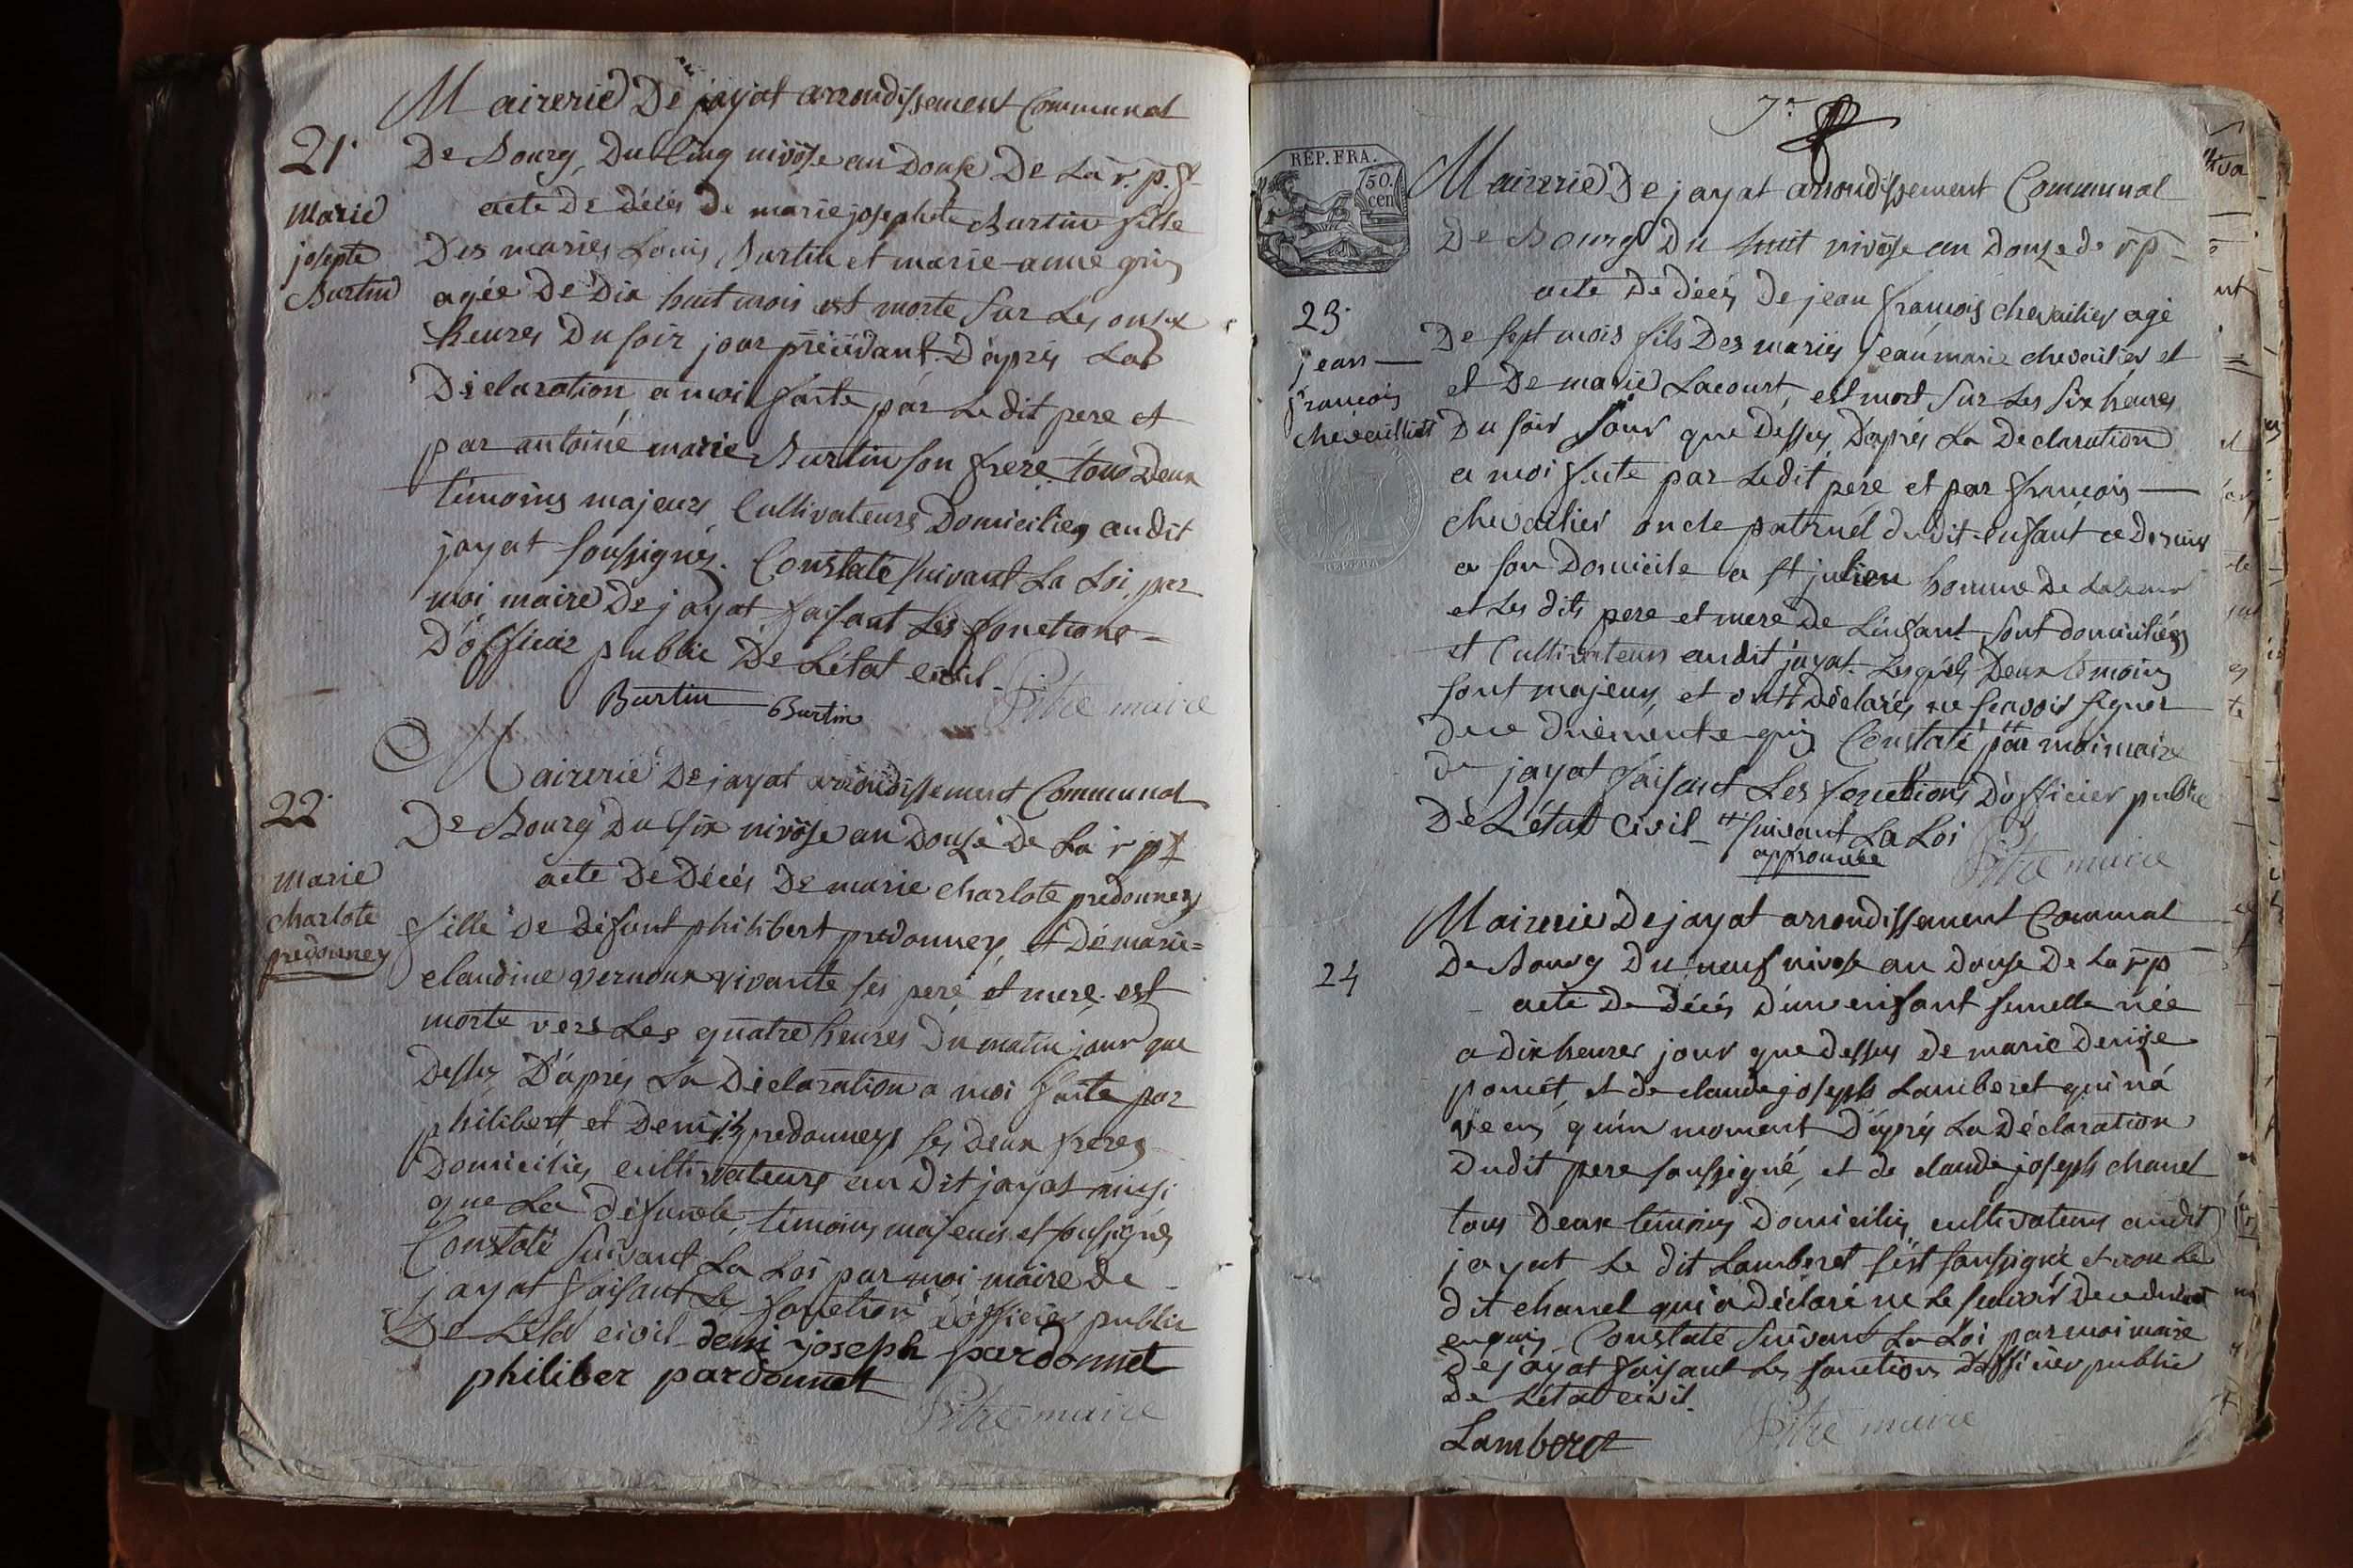 21.
Marie
josepte
Burtin
Mairerie De jayat arrondissement Communal
De Bourg, Du Cinq nivôse an Douse De La r. p. f.
acte De décés De marie josephte Burtin fille
Des mariés Louis Burtin et marie-anne gris
agée De Dix huit mois est morte Sur Les onze
heures Du soir jour précédant. D'aprés La
Déclaration a moi faite par Le dit pere et
par antoine marie Burtin son frere tous Deux
témoins majeurs Cultivateurs Domiciliés audit
jayat soussignés. Constaté suivant La Loi, par
moi maire De jayat faisant Les fonctions
D'officier public De L'état civil.
Burtin Burtin Pitre maire
22.
Marie
charlote
predonney
Mairerie De jayat arrondissement Communal
De Bourg Du six nivôse an Douze De La r p f
acte De Décés De marie charlote predonney
fille De défunt philibert predonney, et De marie=
claudine vernoux vivante ses peré et mere. est
morte vers Les quatre heures Du matin jour que
Dessus D'aprés La Déclaration a moi faite par
philibert et Denis predonneys ses Deux freres
Domiciliés cultivateurs au Dit jayat ainsi
que La défunte, témoins majeurs et soussignés
Constaté suivant La Loi par moi maire De
jayat faisant Les fonction d'officier public
De L'état civil deni joseph pardonnet
philiber pardonnet
Pitre maire
7e
REP. FRA.
50.
cen
23.
jean
francois
chevaillier
Mairerie De jayat arrondissement Communal
De Bourg Du huit nivôse an Douze de r p
acte De décés De jean françois chevailier agé
De sept mois fils Des mariés jean marie chevailier et
et De marie Lacourt, est mort Sur Les Six heures
Du soir Jour que Dessus, D'aprés La Declaration
a moi faite par Ledit pere et par francois
chevailier oncle patruel dudit enfant ce Dernier
a son Domicile a st julien homme De Labeur
et Les dits pere et mere De L'enfant sont domiciliés
et Cultivateurs audit jayat. Lesquels Deux témoins
sont majeurs, et ont Déclarés ne scavoir signer
De ce duement enquis. Constaté par moi maire
De jayat faisant Les fonctions D'officier public
De L'état civil suivant La Loi
approuvée
Pitre maire
24
Mairerie De jayat arrondissement Communal
De Bourg Du neuf nivose an douse De La r p
acte De Décés D'un enfant femelle née
a dix heures jour que dessus de marie denise
poncet, et de claude joseph Lamberet qui n'a
vecu qu'un moment D'aprés La Déclaration
Dudit pere soussigné, et de claude joseph chanel
tous Deux témoins Domiciliés cultivateurs audit
jayat Le dit Lamberet s'est soussigné et non Le
dit chanel qui a déclaré ne Le scavoir De ce duement
enquis. Constaté suivant La Loi par moi maire
De jayat faisant Les fonctions d'officier public
De L'état civil.
Lamberet Pitre maire